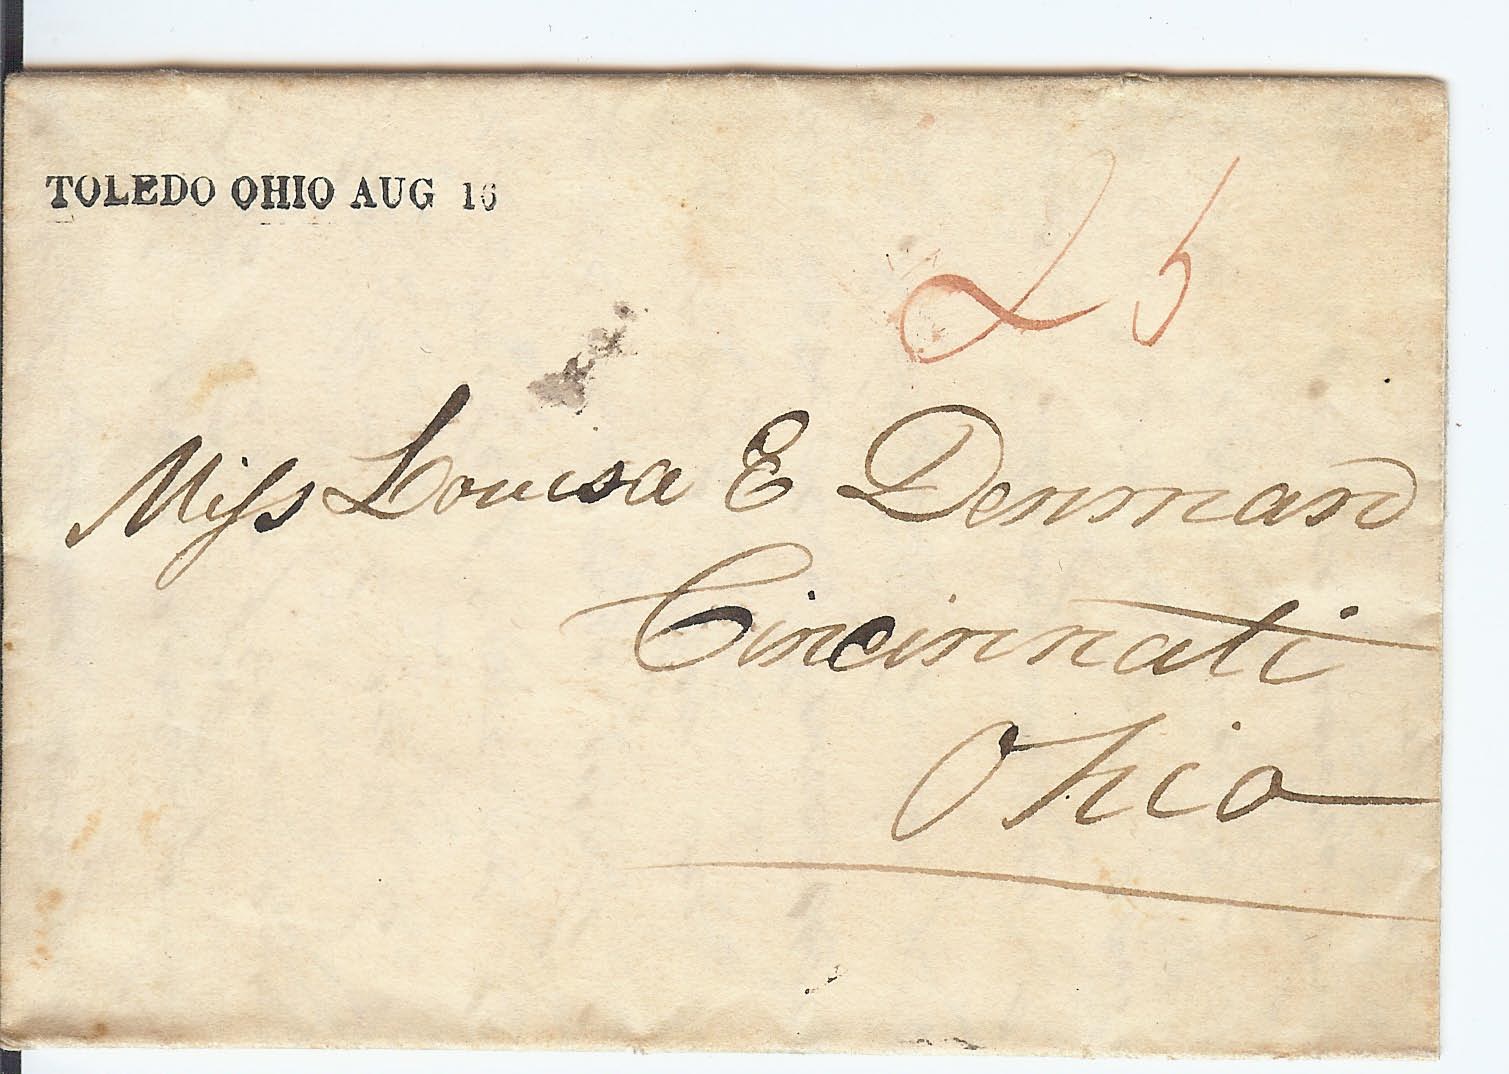 TOLEDO OHIO AUG 16
25
Miss Louisa E Denman
Cincinnati
Ohio